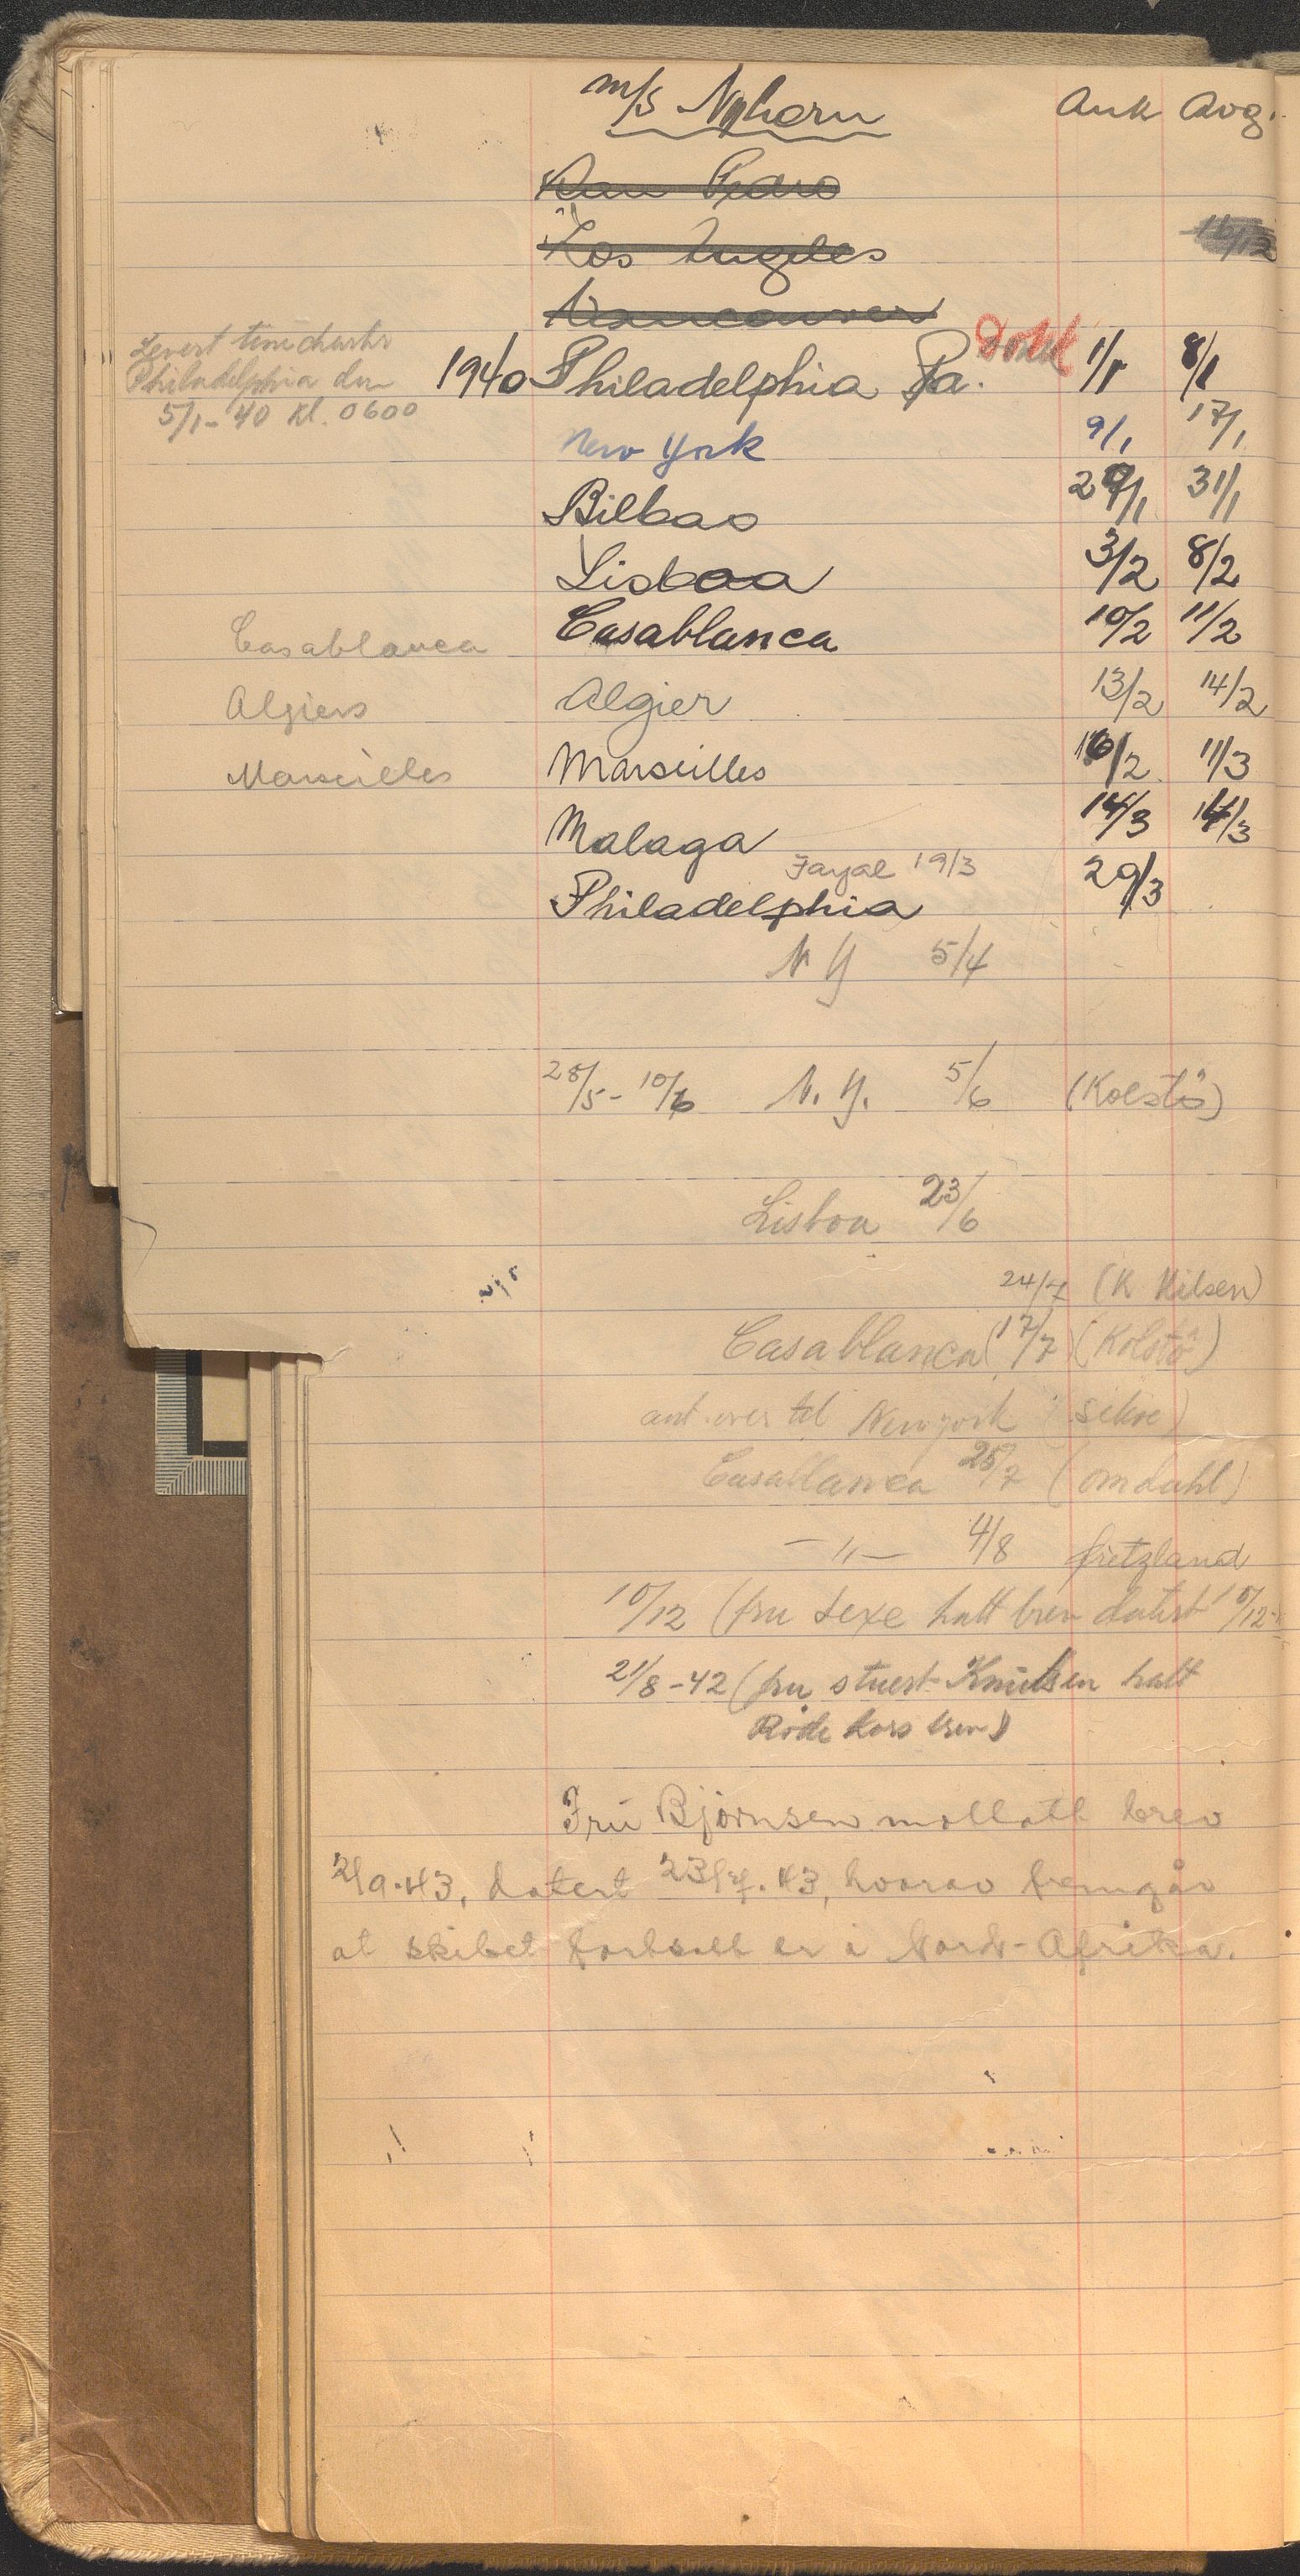 m/s Nyhorn Ank Avg.
San Pedro
Los Angeles 16/12
Vancouver
Levert timecharter
Philadelphia den
5/1-40 kl. 0600
1940 Philadelphia Pa. Dokk 1/1 8/1
New York 9/1 17/1
Bilbao 29/1 31/1
Lisboa 3/2 8/2
Casablanca Casablanca 10/2 11/2
Algiers Algier 13/2 14/2
Marseilles Marseilles 16/2 11/3
Malaga 14/3 14/3
Fayal 19/3
Philadelphia 29/3
N Y 5/4
28/5 - 10/6 N.Y. 5/6 (Kolstö)
Lisboa 23/6
24/7 (K Nilsen)
Casablanca (17/7 (Kolstö)
New york
Casablanca 25/7 (Omdahl)
— " — 4/8 Fretzland
10/12 (fru Sexe hatt brev datert 10/12-
21/8-42 (fru stuert Knutsen hatt
Röde kors brev)
Fru Bjørnsen mottatt brev
2/9-43, datert 23/7.43, hvorav fremgår
at skibet fortsatt er i Nord-Afrika.